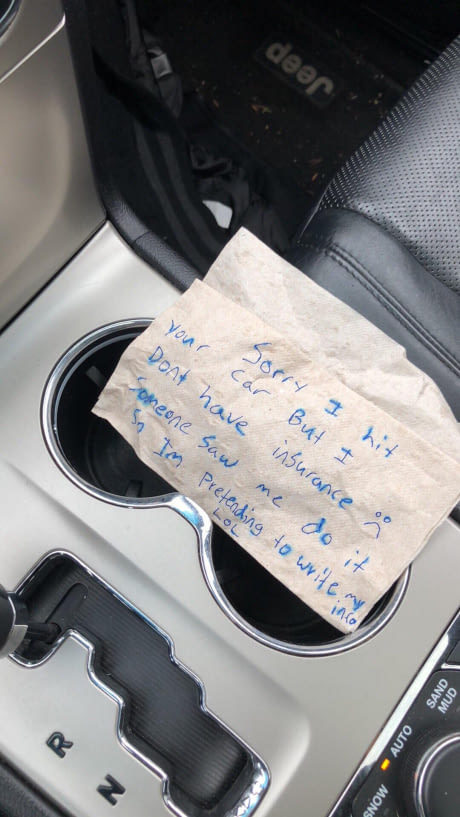 Jeep
Sorry I hit
your car But I
Dont have insurance ☹
Someone saw me do it
So Im Pretending to write my
LOL info
R
N
SAND
MUD
AUTO
SNOW